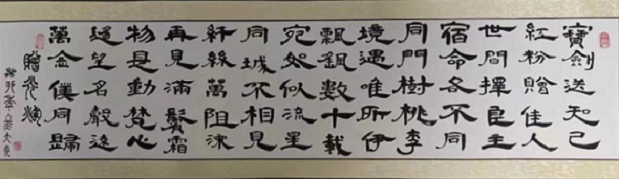 寶劍送知己
紅粉贈佳人
世間擇良主
宿命各不同
同門樹桃李
境遇唯所伊
飄數十載
宛如似流星
同城不相見
絲萬阻
再見滿鬢霜
物是動梵心
望名遠
萬金僕同歸
贈飛